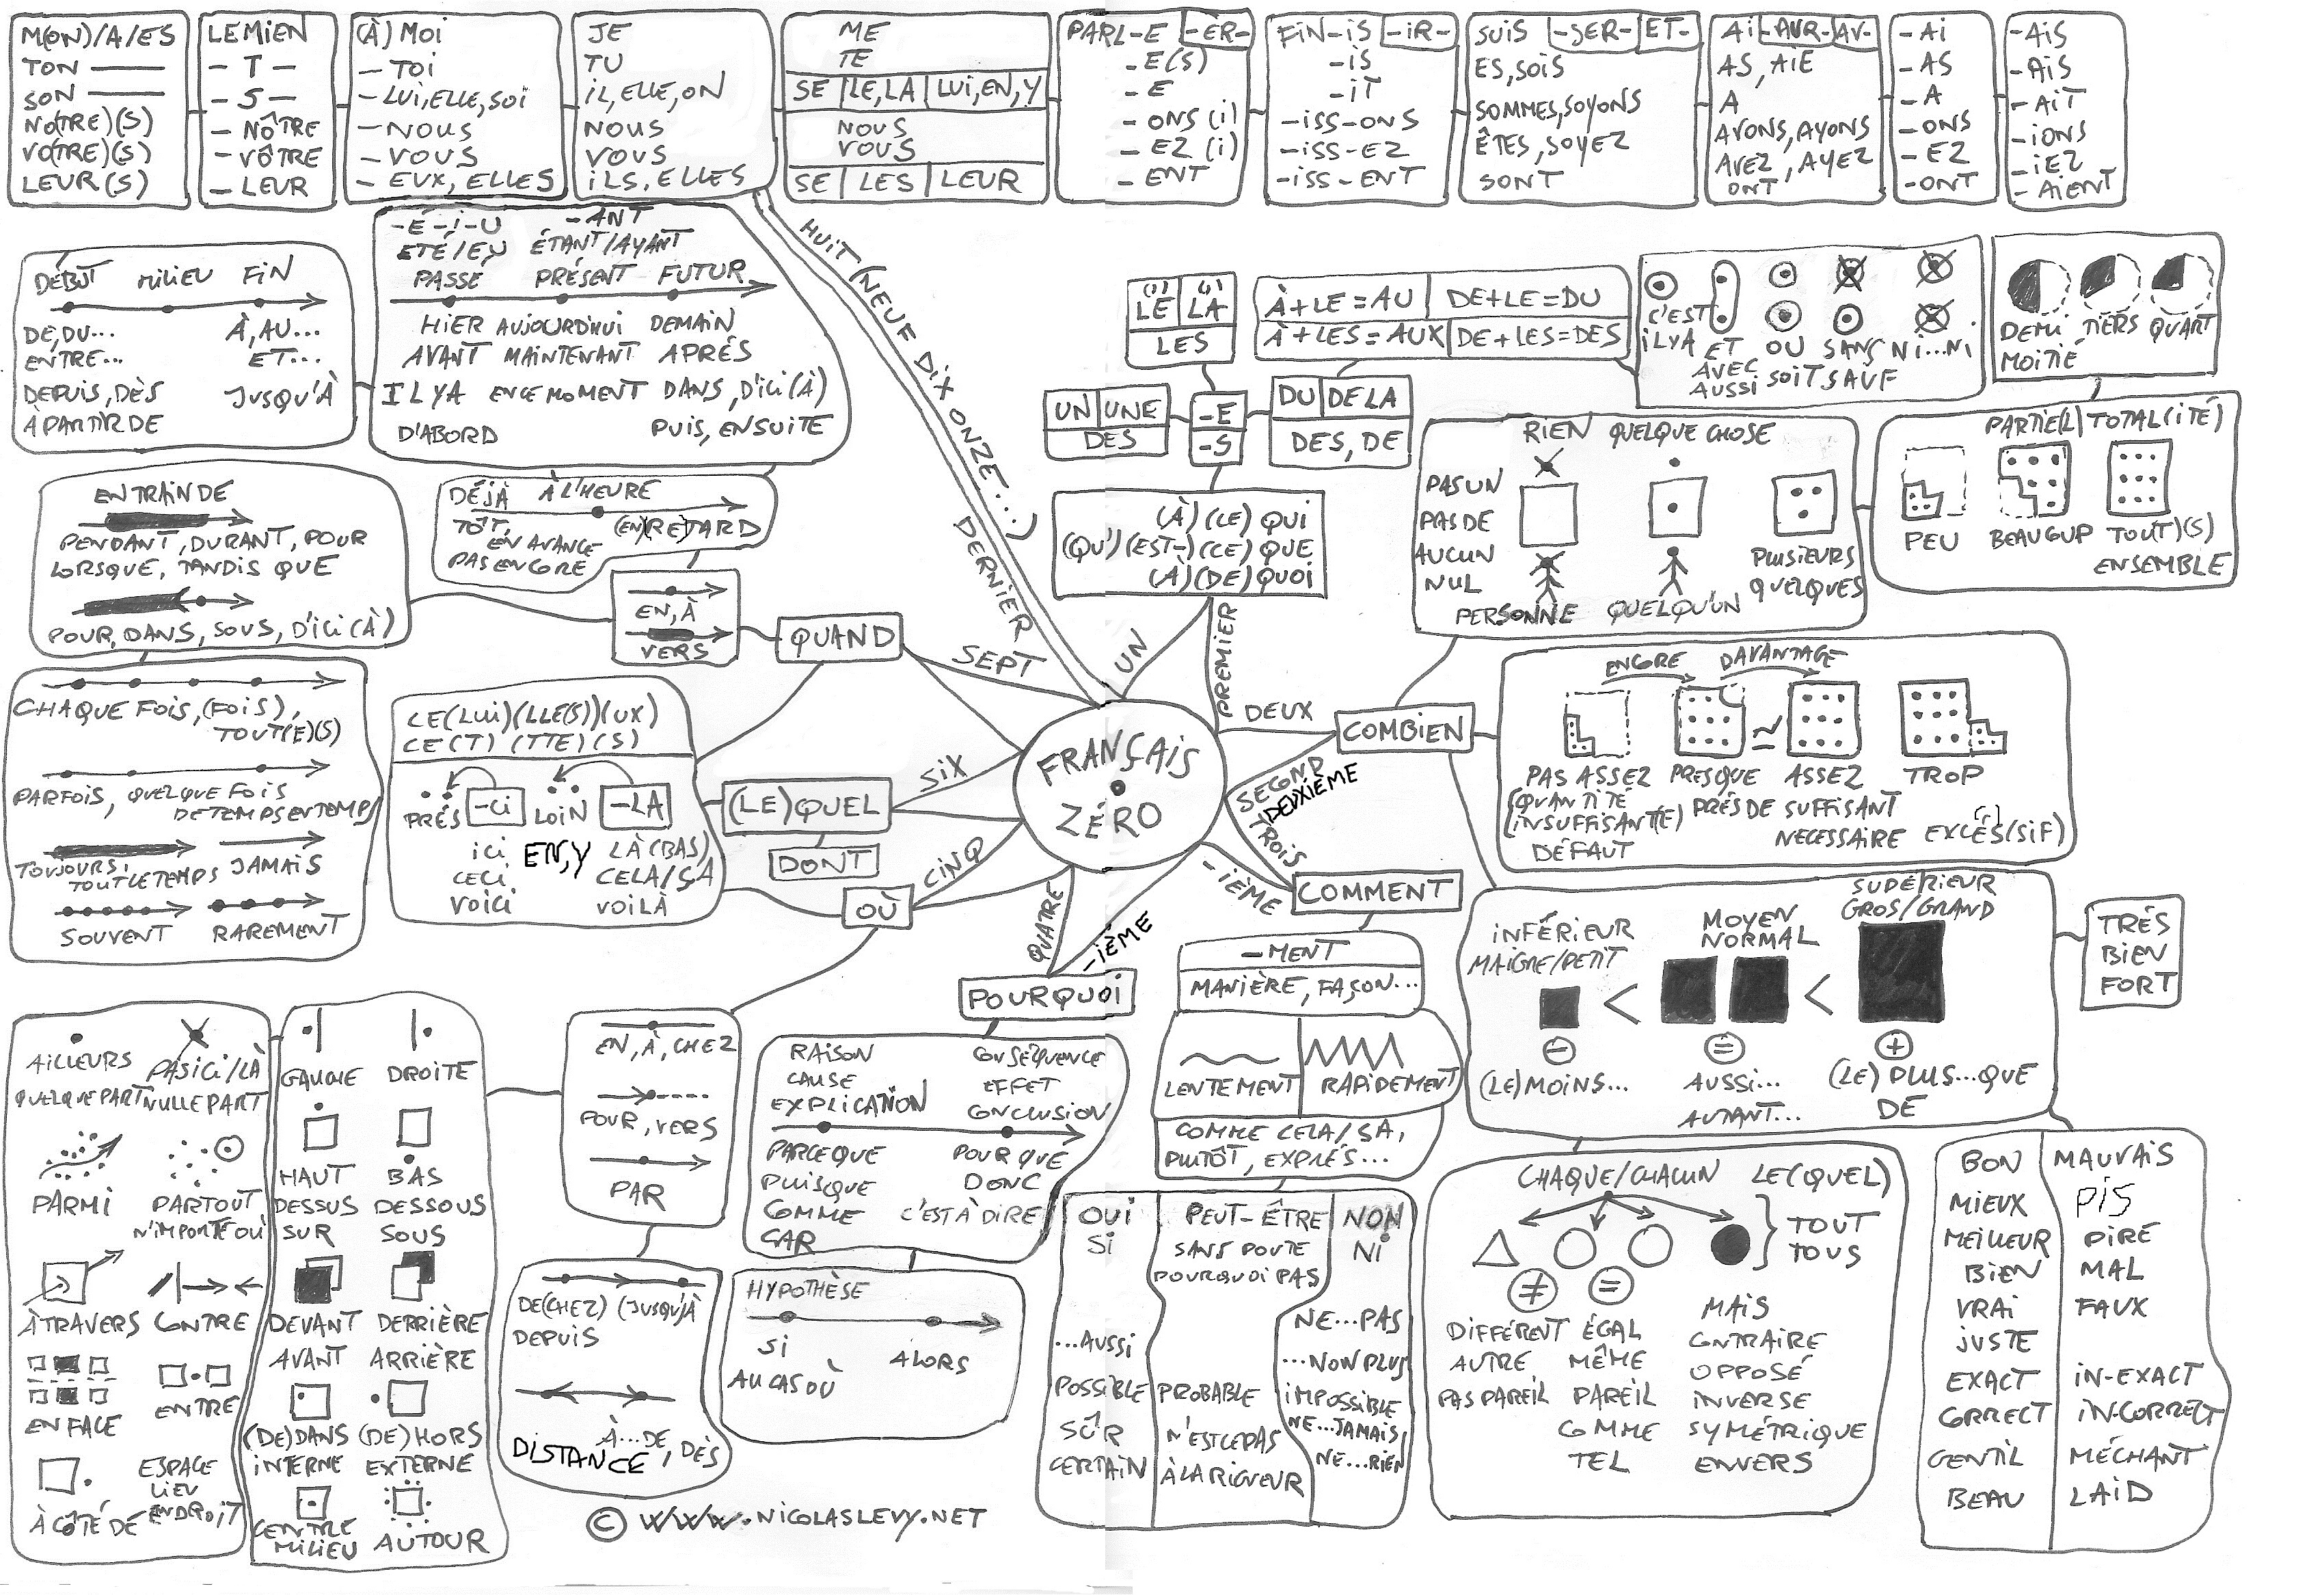 M(ON)/A/ES
TON
SON
NO(TRE)(S)
VO(TRE)(S)
LEUR(S)
LE MIEN
- T -
- S -
- NÔTRE
- VÔTRE
- LEUR
(À) MOI
- TOI
- LUI, ELLE, SOI
- NOUS
- VOUS
- EUX, ELLES
JE
TU
IL, ELLE, ON
NOUS
VOUS
ILS, ELLES
ME
TE
SE LE, LA LUI, EN, Y
NOUS
VOUS
SE LES LEUR
PARL-E -ER-
- E(S)
- E
- ONS (i)
- EZ (i)
- ENT
FIN-IS -IR-
-IS
-IT
-ISS-ONS
-ISS-EZ
-ISS-ENT
SUIS -SER- ET-
ES, SOIS
SOMMES, SOYONS
ÊTES, SOYEZ
SONT
AI -AUR- AV-
AS, AIE
A
AVONS, AYONS
AVEZ, AYEZ
ONT
- AI
- AS
- A
- ONS
- EZ
- ONT
- AIS
- AIS
- AIT
- IONS
- IEZ
- AIENT
DÉBUT MILIEU FIN
DE, DU... À, AU...
ENTRE... ET...
DEPUIS, DÈS JUSQU'À
À PARTIR DE
-É -I -U -ANT
ÉTÉ/EU ÉTANT/AYANT
PASSÉ PRÉSENT FUTUR
HIER AUJOURD'HUI DEMAIN
AVANT MAINTENANT APRÉS
IL Y A EN CE MOMENT DANS, D'ICI (À)
D'ABORD PUIS, ENSUITE
HUIT (NEUF DIX ONZE...)
DERNIER
LE LA
LES
À+LE=AU DE+LE=DU
À+LES=AUX DE+LES=DES
C'EST
IL Y A ET OU SANS NI...NI
AVEC
AUSSI SOIT SAUF
DEMI TIERS QUART
MOITIÉ
UN UNE
DES
-E
-S
DU DE LA
DES, DE
RIEN QUELQUE CHOSE
PAS UN
PAS DE
AUCUN
NUL
PLUSIEURS
QUELQUES
PERSONNE QUELQU'UN
PARTIE(L) TOTAL(ITÉ)
PEU BEAUCUP TOUT)(S)
ENSEMBLE
EN TRAIN DE
PENDANT, DURANT, POUR
LORSQUE, TANDIS QUE
POUR, DANS, SOUS, D'ICI (À)
DÉJÀ À L'HEURE
TÔT, (EN)(RE)TARD
EN AVANCE
PAS ENCORE
EN, À
VERS
QUAND
SEPT
UN
PREMIER
(À) (CE) QUI
(QU') (EST-) (CE) QUE
(À) (DE) QUOI
CHAQUE FOIS, (FOIS),
TOUT(E)(S)
PARFOIS, QUELQUE FOIS
DE TEMPS EN TEMPS
TOUJOURS, JAMAIS
TOUT LE TEMPS
SOUVENT RAREMENT
CE(LUI)(LLE(S))(UX)
CE(T) (TTE) (S)
PRÉS -CI LOIN -LA
ICI EN, Y LÀ (BAS)
CECI CELA/ÇA
VOICI VOILÀ
SIX
(LE) QUEL
DONT
CINQ
OÙ
FRANÇAIS
ZÉRO
DEUX
COMBIEN
SECOND
DEUXIÈME
TROIS
-IÈME
COMMENT
QUATRE
-IÈME
POURQUOI
ENCORE DAVANTAGE
PAS ASSEZ PRESQUE ASSEZ TROP
(QUANTITÉ PRÉS DE SUFFISANT
INSUFFISANT(E) NECESSAIRE EXCÉS(SIF)
DÉFAUT
SUPÉRIEUR
GROS/GRAND
MOYEN
NORMAL
INFÉRIEUR
MAIGRE/PETIT
< <
- = +
(LE) MOINS... AUSSI... (LE) PLUS...QUE
AUTANT... DE
TRÉS
BIEN
FORT
-MENT
MANIÈRE, FAÇON...
LENTEMENT RAPIDEMENT
COMME CELA/ÇA,
PLUTÔT, EXPRÉS...
AILLEURS PAS ICI/LÀ
QUELQUE PART NULLE PART
PARMI PARTOUT
N'IMPORTE OÙ
À TRAVERS CONTRE
EN FACE ENTRE
À CÔTÉ DE ESPACE
LIEU
ENDROIT
GAUCHE DROITE
HAUT BAS
DESSUS DESSOUS
SUR SOUS
DEVANT DERRIÈRE
AVANT ARRIÈRE
(DE)DANS (DE)HORS
INTERNE EXTERNE
CENTRE AUTOUR
MILIEU
EN, À, CHEZ
POUR, VERS
PAR
DE(CHEZ) (JUSQU')À
DEPUIS
À...DE, DÈS
DISTANCE
RAISON CONSÉQUENCE
CAUSE EFFET
EXPLICATION CONCLUSION
PARCE QUE POUR QUE
PUISQUE DONC
COMME C'EST À DIRE
CAR
HYPOTHÈSE
SI ALORS
AU CAS OÙ
OUI PEUT-ÊTRE NON
SI SANS DOUTE NI
POURQUOI PAS
NE...PAS
...AUSSI ...NON PLUS
POSSIBLE PROBABLE IMPOSSIBLE
SÛR N'EST CE PAS NE...JAMAIS,
CERTAIN À LA RIGUEUR NE...RIEN
CHAQUE/CHACUN LE(QUEL)
TOUT
TOUS
≠ =
DIFFÉRENT ÉGAL MAIS
AUTRE MÊME CONTRAIRE
PAS PAREIL PAREIL OPPOSÉ
COMME INVERSE
TEL SYMÉTRIQUE
ENVERS
BON MAUVAIS
MIEUX PIS
MEILLEUR PIRE
BIEN MAL
VRAI FAUX
JUSTE
EXACT IN-EXACT
CORRECT IN-CORRECT
GENTIL MÉCHANT
BEAU LAID
© WWW.NICOLASLEVY.NET